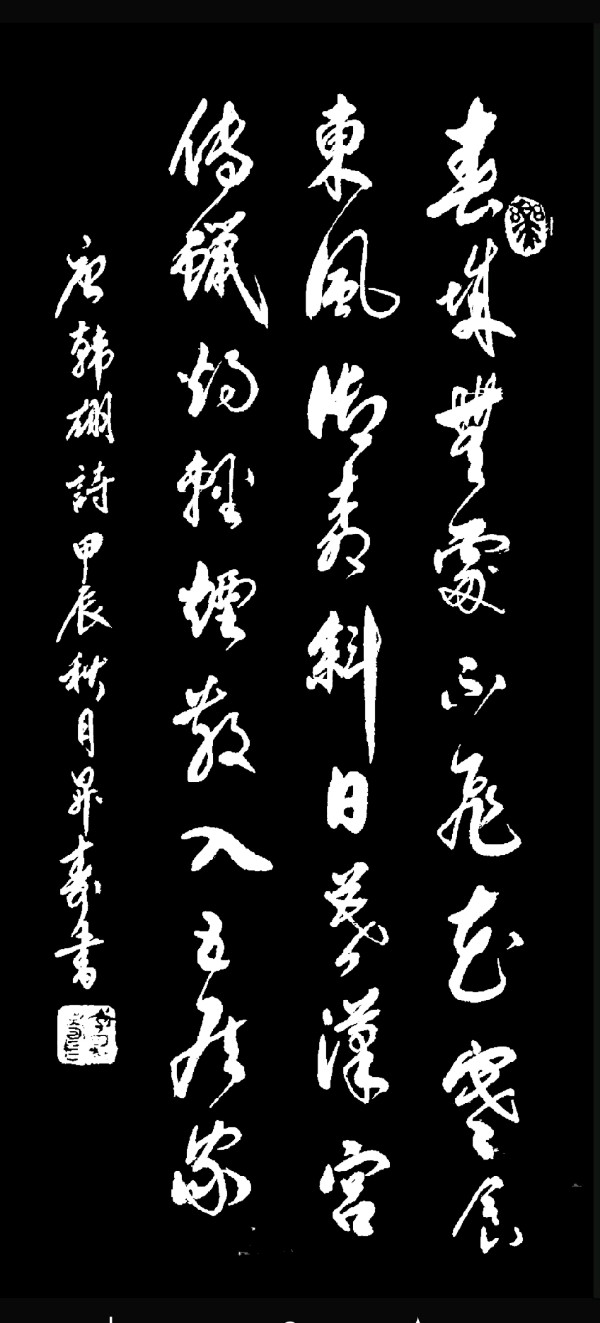 春城無處不飛花寒食
東風御柳斜日暮漢宮
傳蠟燭輕煙散入五侯家
唐韓翃詩甲辰秋月昇壽書